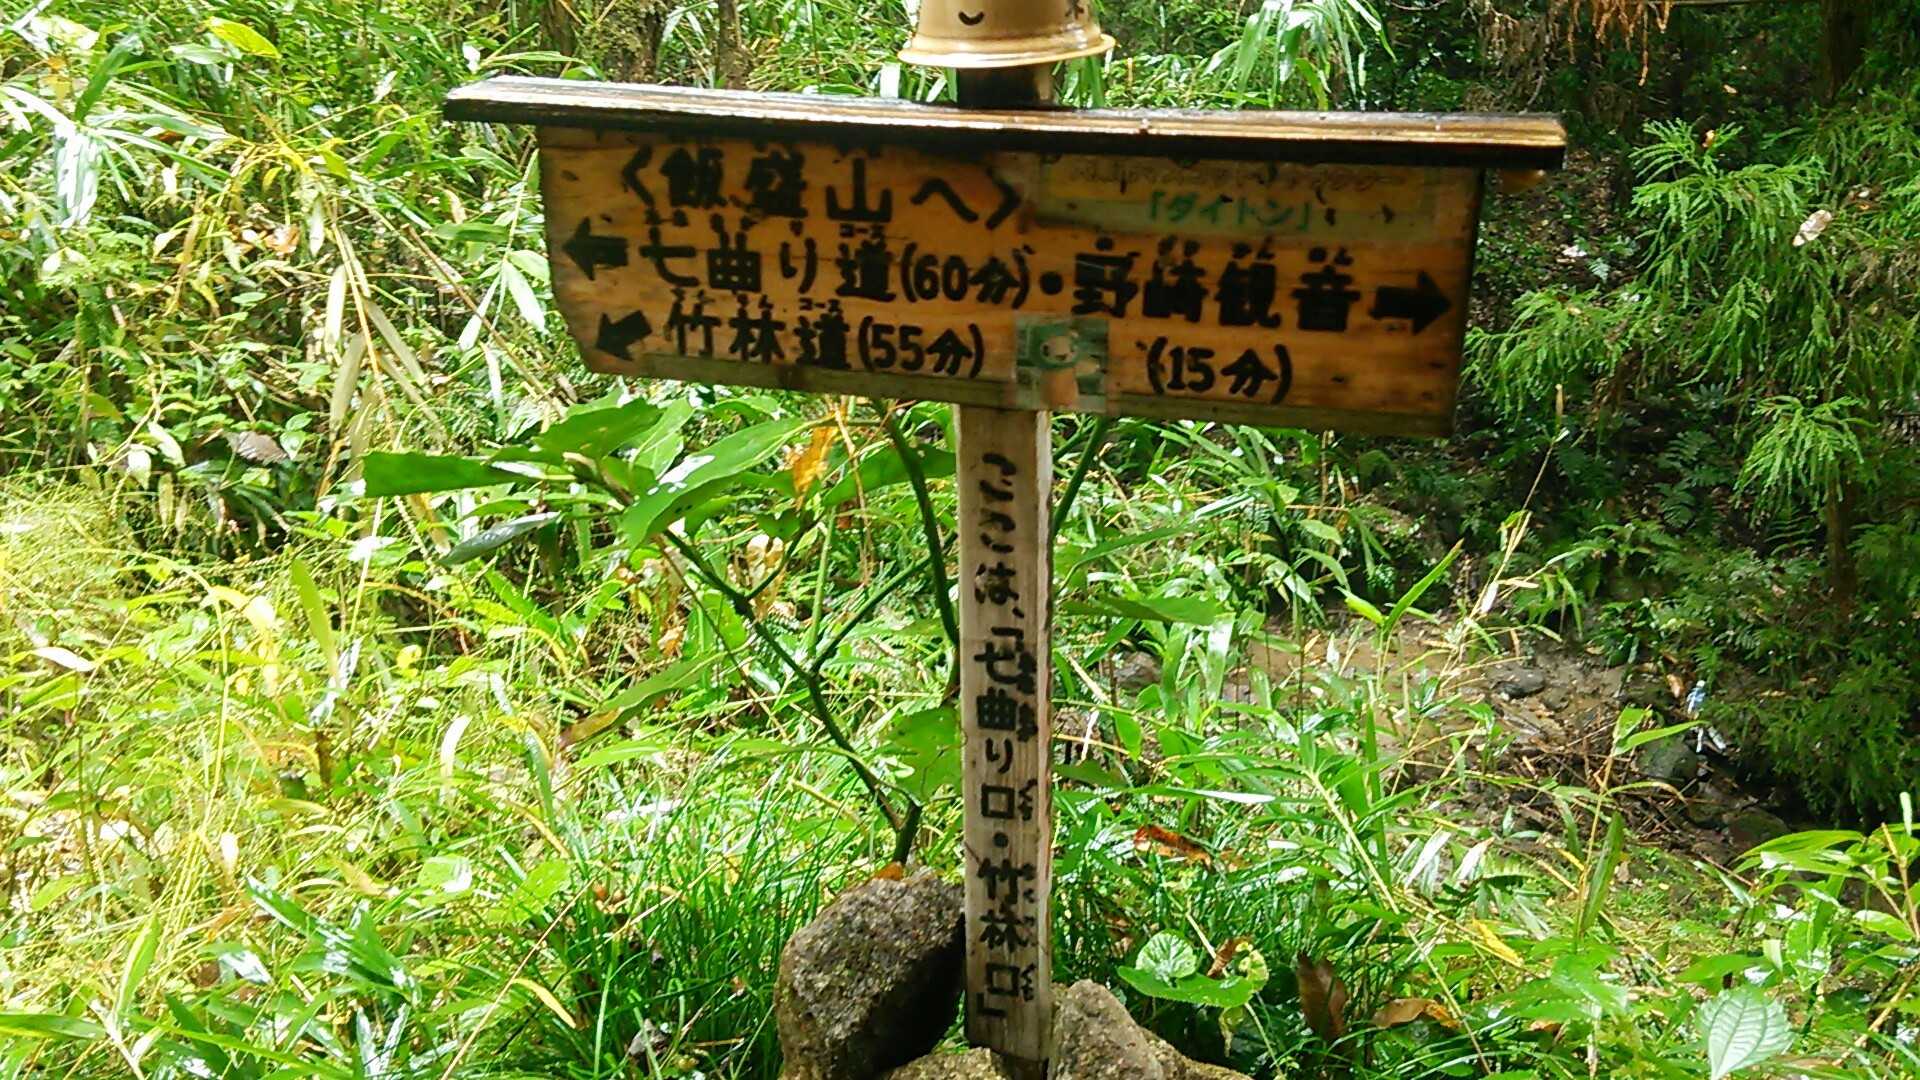 〈飯盛山へ〉
「ダイトン」
← 七曲り道(60分)・野崎観音 →
コース
↙ 竹林道(55分)
コース
(15分)
ここは、「七曲り口・竹林口」